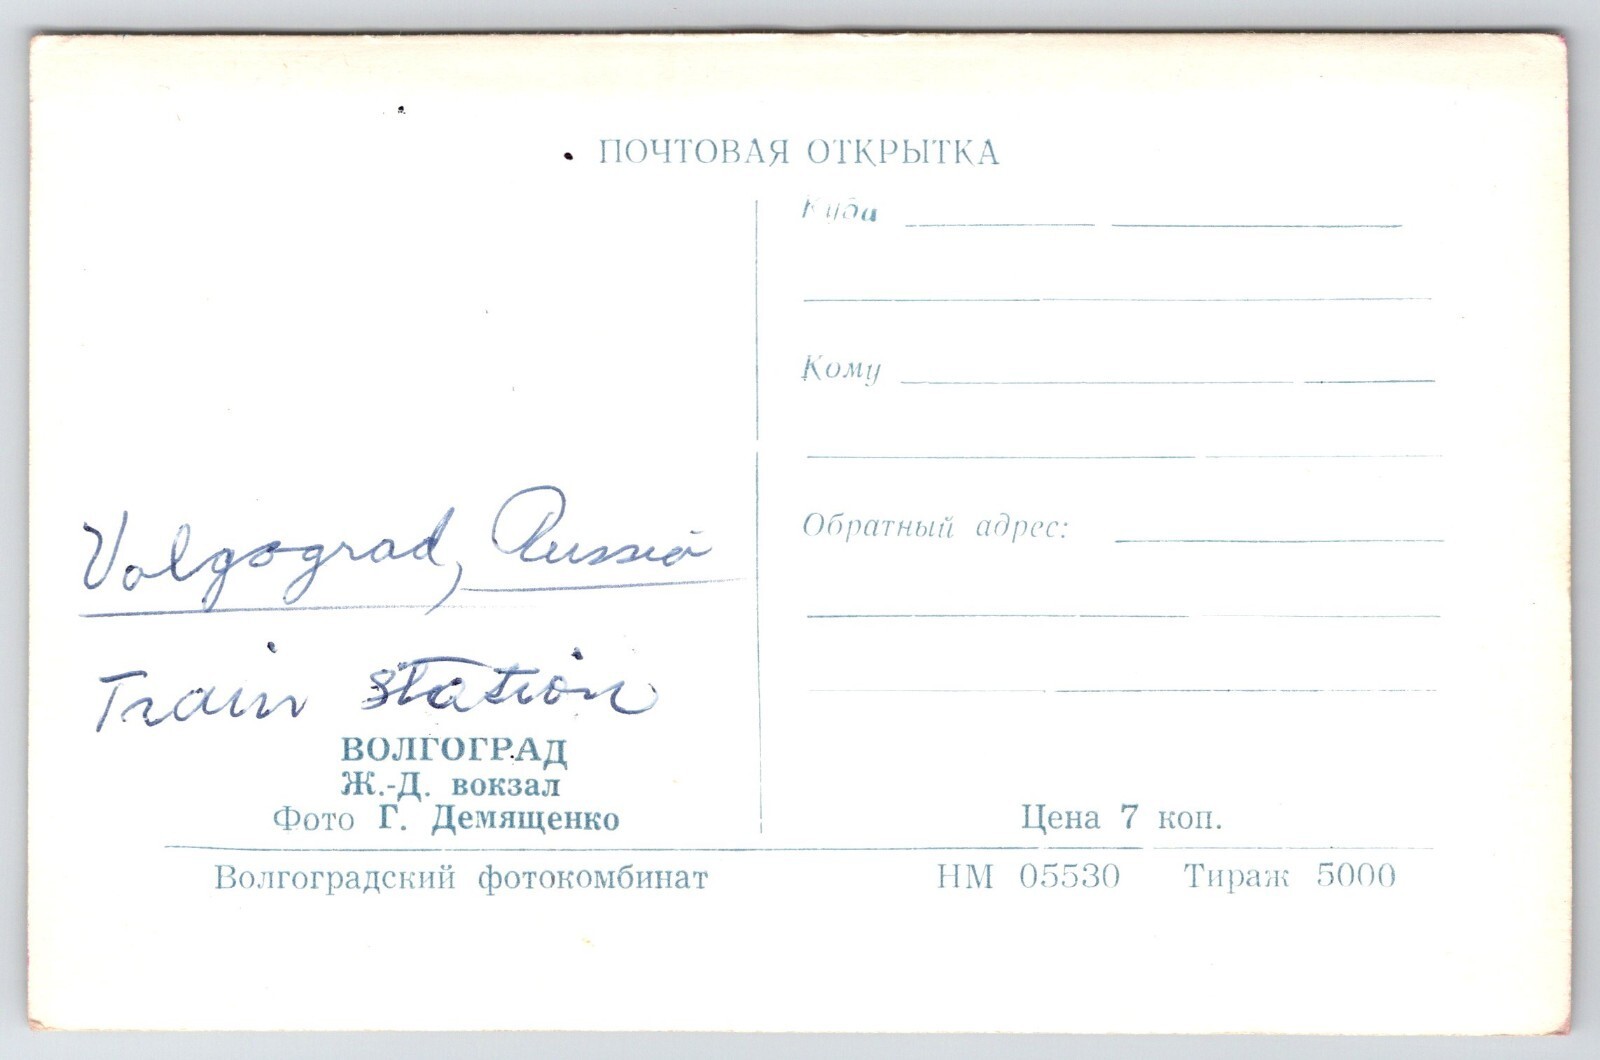 ПОЧТОВАЯ ОТКРЫТКА
Куда
Кому
Обратный адрес:
Volgograd, Russia
Train station
ВОЛГОГРАД
Ж.-Д. вокзал
Фото Г. Демященко
Цена 7 коп.
Волгоградский фотокомбинат
НМ 05530 Тираж 5000